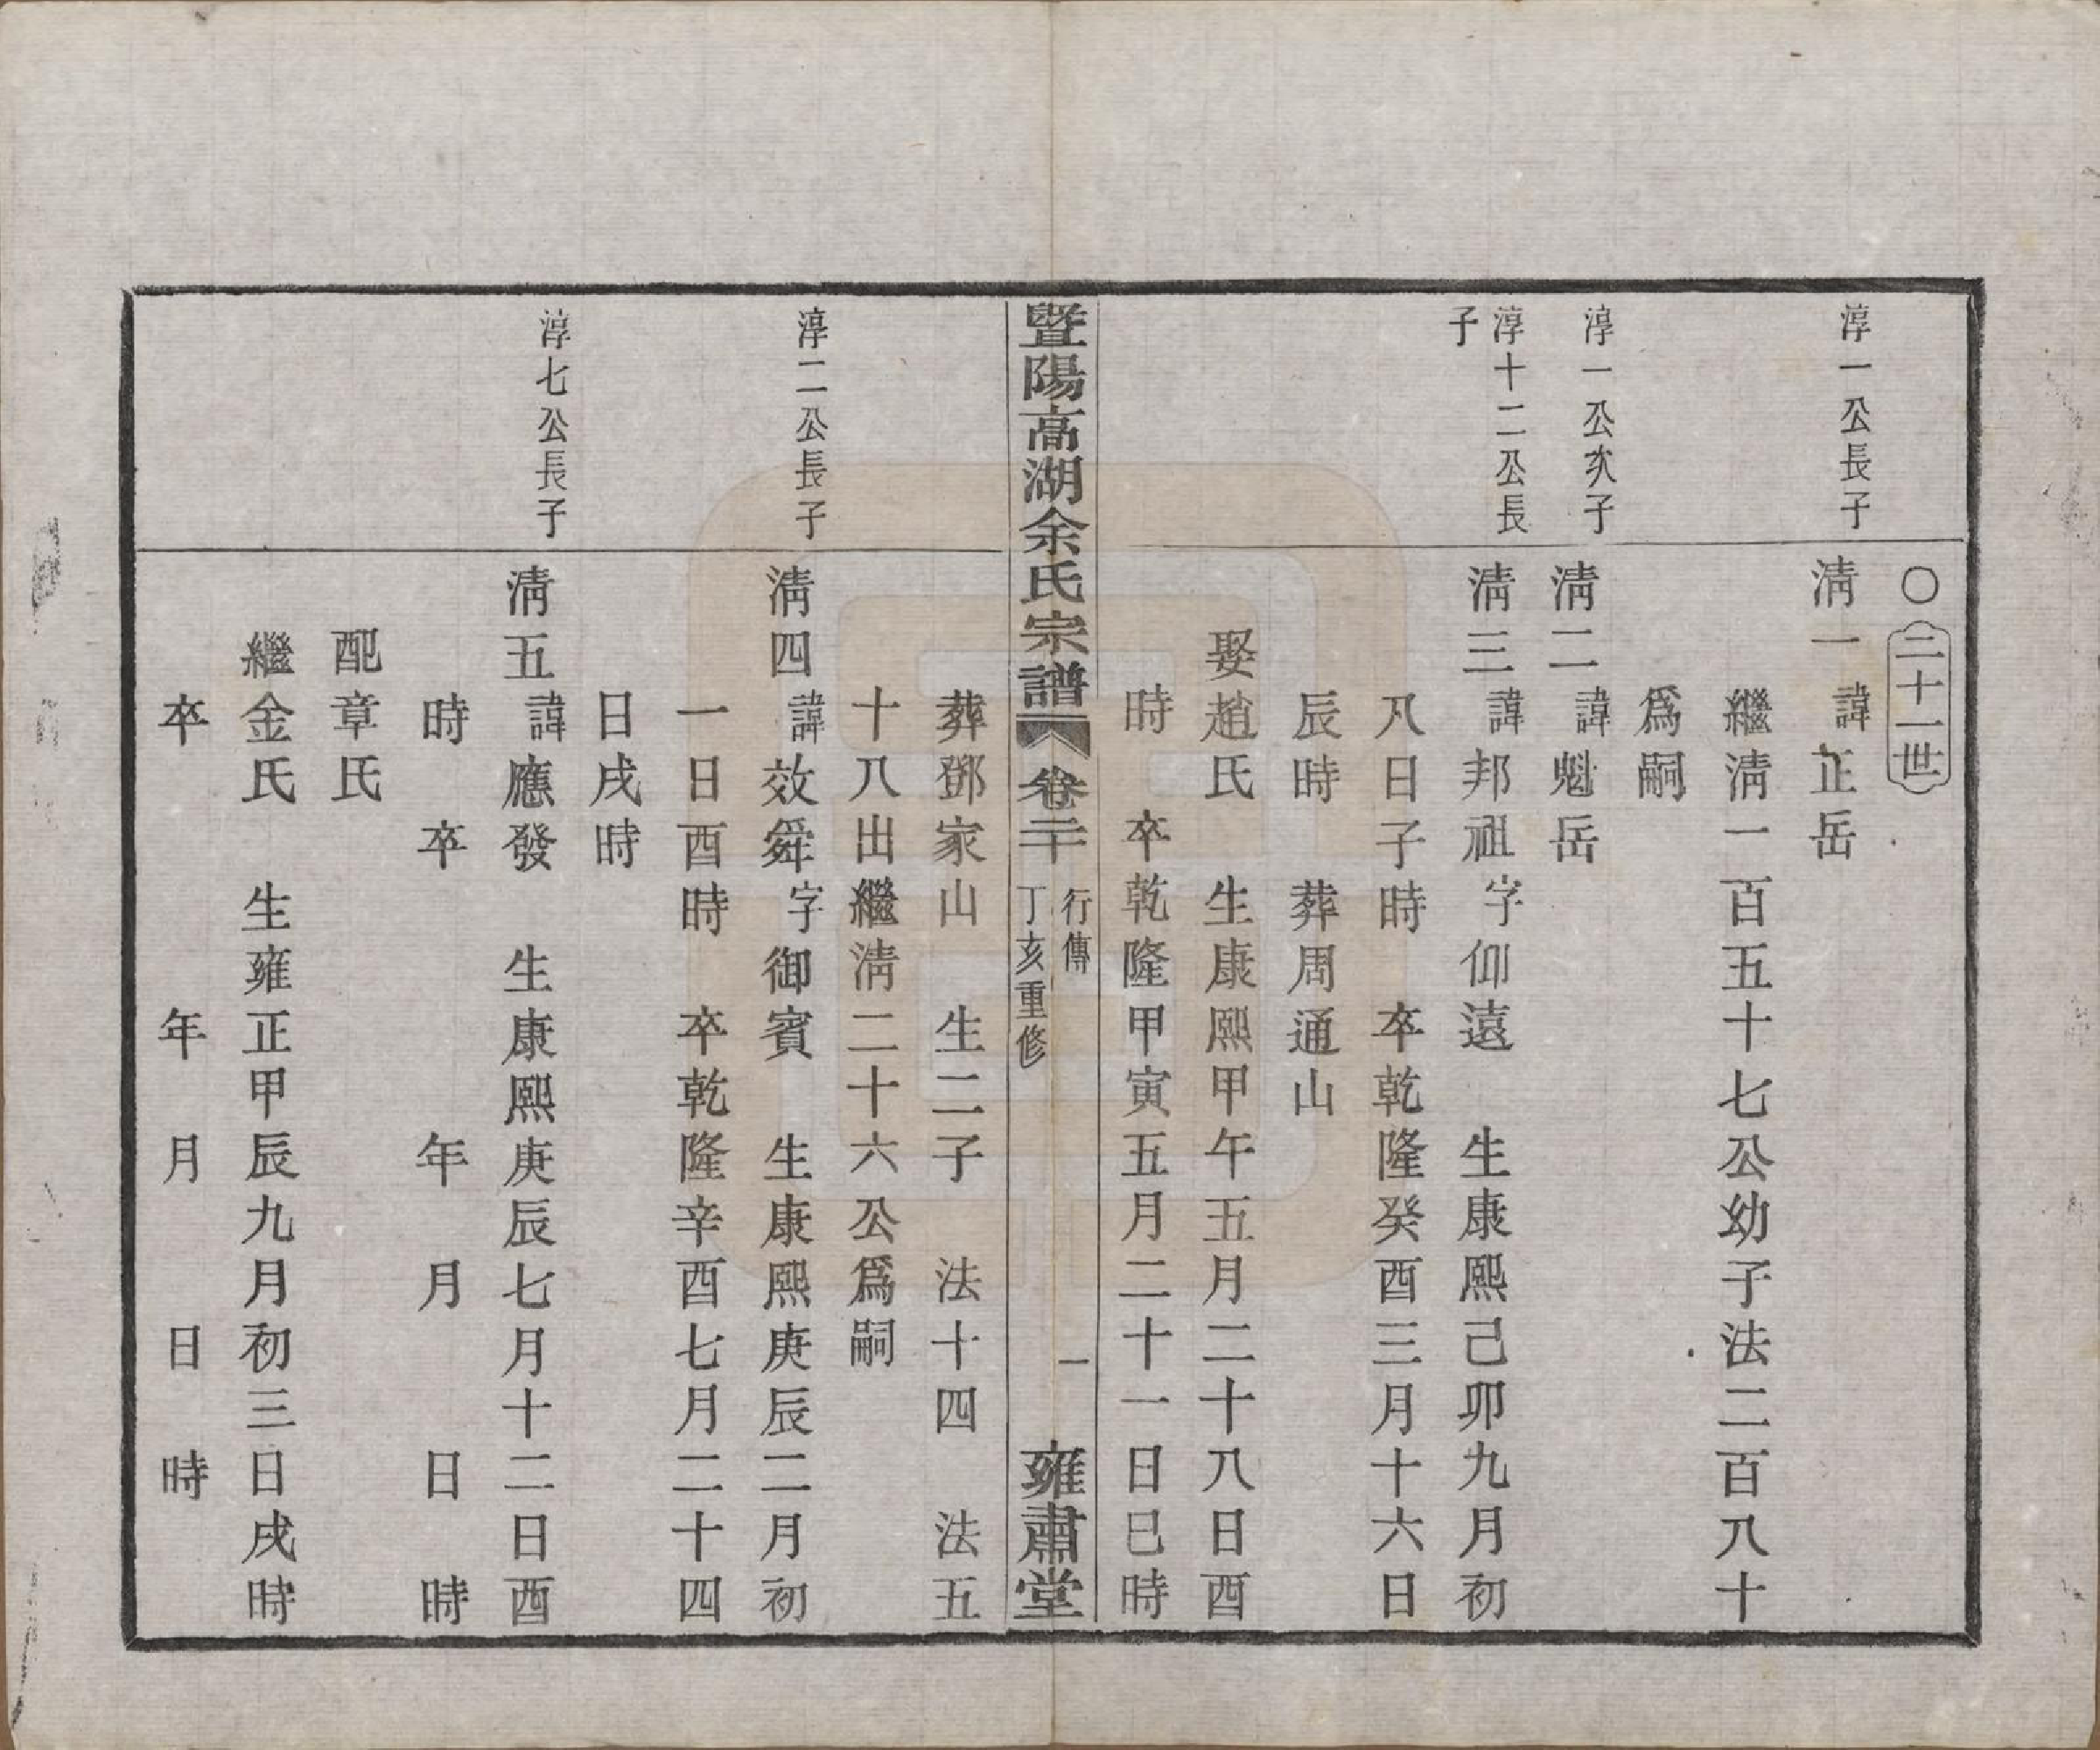 ○二十一世
淳一公長子
清一諱正岳
繼清一百五十七公幼子法二百八十
爲嗣
淳一公次子
清二諱魁岳
淳十二公長
子
清三諱邦祖字仰遠 生康熙己卯九月初
八日子時 卒乾隆癸酉三月十六日
辰時 葬周通山
娶趙氏 生康熙甲午五月二十八日酉
時 卒乾隆甲寅五月二十一日巳時
暨陽高湖余氏宗譜 卷二十 行傳 丁亥重修 一 雍肅堂
葬鄧家山 生二子 法十四 法五
十八出繼清二十六公爲嗣
淳二公長子
清四諱效舜字御賓 生康熙庚辰二月初
一日酉時 卒乾隆辛酉七月二十四
日戌時
淳七公長子
清五諱應發 生康熙庚辰七月十二日酉
時 卒 年 月 日 時
配章氏
繼金氏 生雍正甲辰九月初三日戌時
卒 年 月 日 時